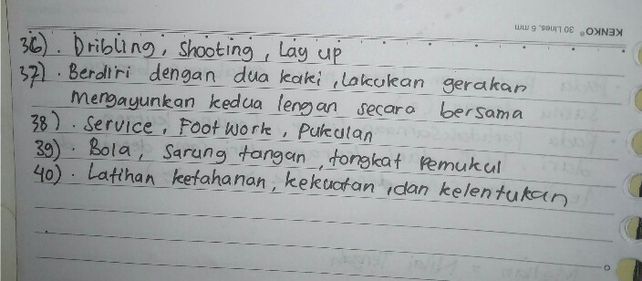 KENKO® 30 Lines, 6 mm
36). Dribling, shooting, Lay up
37). Berdiri dengan dua kaki, Lakukan gerakan
mengayunkan kedua lengan secara bersama
38). Service, Foot work, Pukulan
39). Bola, sarung tangan, tongkat Pemukul
40). Latihan ketahanan, kekuatan, dan kelentukan